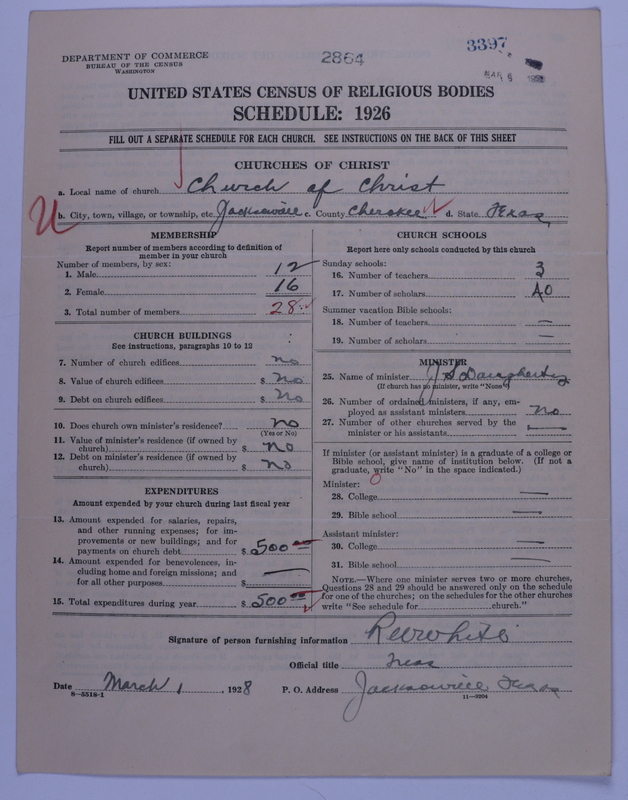 DEPARTMENT OF COMMERCE
BUREAU OF THE CENSUS
WASHINGTON
2864
3397
UNITED STATES CENSUS OF RELIGIOUS BODIES
SCHEDULE: 1926
FILL OUT A SEPARATE SCHEDULE FOR EACH CHURCH. SEE INSTRUCTIONS ON THE BACK OF THIS SHEET
CHURCHES OF CHRIST
a. Local name of church Church of Christ
b. City, town, village, or township, etc. Jacksonville c. County Cherokee d. State Texas
MEMBERSHIP
Report number of members according to definition of
member in your church
Number of members, by sex:
1. Male 12
2. Female 16
3. Total number of members 28
CHURCH BUILDINGS
See instructions, paragraphs 10 to 12
7. Number of church edifices no
8. Value of church edifices $ no
9. Debt on church edifices $ no
10. Does church own minister's residence? no
(Yes or No)
11. Value of minister's residence (if owned by
church) $ no
12. Debt on minister's residence (if owned by
church) $ no
EXPENDITURES
Amount expended by your church during last fiscal year
13. Amount expended for salaries, repairs,
and other running expenses; for im-
provements or new buildings; and for
payments on church debt $ 500 00
14. Amount expended for benevolences, in-
cluding home and foreign missions; and
for all other purposes $ —
15. Total expenditures during year $ 500 00
CHURCH SCHOOLS
Report here only schools conducted by this church
Sunday schools:
16. Number of teachers 3
17. Number of scholars 40
Summer vacation Bible schools:
18. Number of teachers —
19. Number of scholars —
MINISTER
25. Name of minister J S Daugherty
(If church has no minister, write "None")
26. Number of ordained ministers, if any, em-
ployed as assistant ministers no
27. Number of other churches served by the
minister or his assistants —
If minister (or assistant minister) is a graduate of a college or
Bible school, give name of institution below. (If not a
graduate, write "No" in the space indicated.)
Minister:
28. College —
29. Bible school —
Assistant minister:
30. College —
31. Bible school —
NOTE.—Where one minister serves two or more churches,
Questions 28 and 29 should be answered only on the schedule
for one of the churches; on the schedules for the other churches
write "See schedule for church."
Signature of person furnishing information
Official title Treas
Date March 1, 1928 P. O. Address Jacksonville Texas
8—5518-1 11—9204